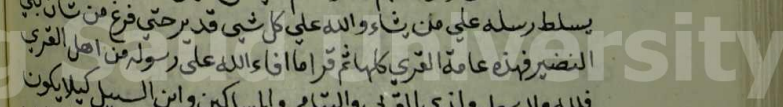 يسلط رسله علي من يشاء والله علي كل شي قدير حتي فرغ من شان بني
النضير فهذه عامة القري كلها ثم قرا ما افاء الله علي رسوله من اهل القري
فلله وللرسول ولذي القربي واليتامي والمساكين وابن السبيل كيلا يكون
versity